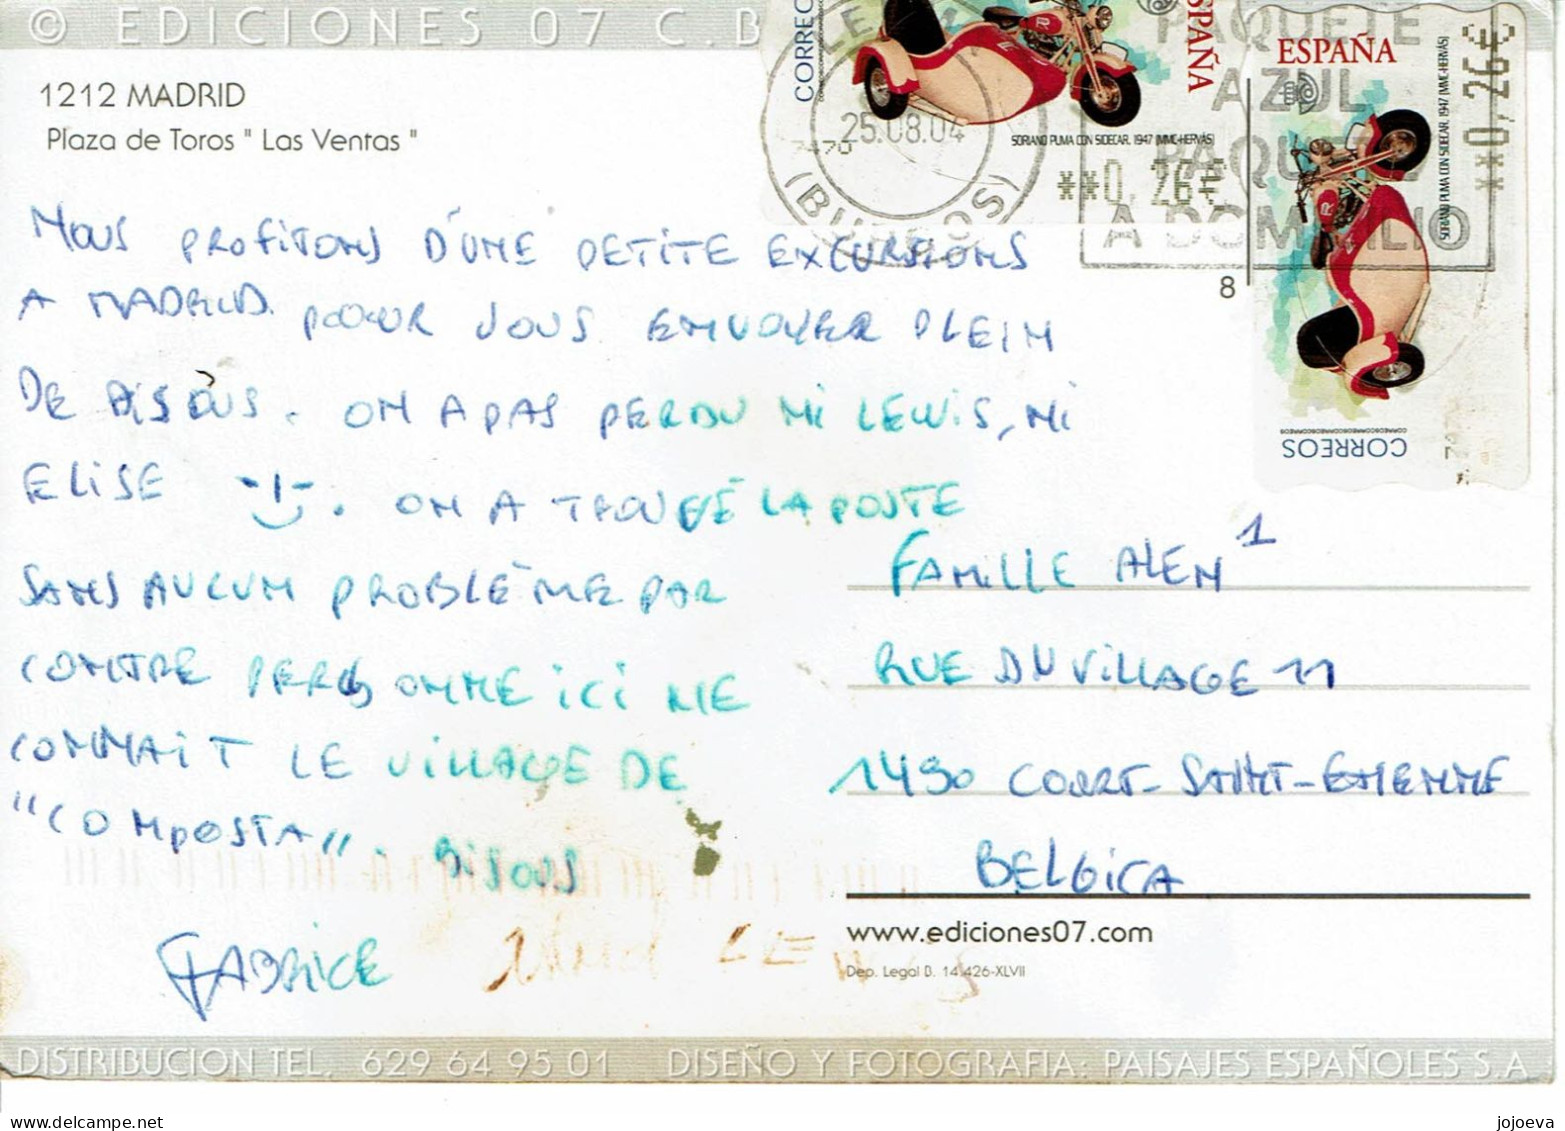 © EDICIONES 07 C.B
1212 MADRID
Plaza de Toros " Las Ventas "
CORREO
ESPAÑA
SORIANO PUMA CON SIDECAR. 1947 (MMC-HERVÁS)
**0,26€
7470
25.08.04
(BURGOS)
PAQUETE
AZUL
PAQUETE
A DOMICILIO
ESPAÑA
**0,26€
SORIANO PUMA CON SIDECAR. 1947 (MMC-HERVÁS)
CORREOS
8
NOUS PROFITONS D'UNE PETITE EXCURSIONS
A MADRID. POUR VOUS ENVOYER PLEIN
DE BISOUS. ON A PAS PERDU NI LEWIS, NI
ELISE . ON A TROUVÉ LA POSTE
SANS AUCUN PROBLÈME PAR
CONTRE PERSONNE ICI NE
CONNAIT LE VILLAGE DE
"COMPOSTA". BISOUS
FABRICE LEWIS
FAMILLE ALEN
RUE DU VILLAGE 11
1490 COURT-SAINT-ETIENNE
BELGICA
www.ediciones07.com
Dep. Legal B. 14.426-XLVII
DISTRIBUCION TEL. 629 64 95 01 DISEÑO Y FOTOGRAFIA: PAISAJES ESPAÑOLES S.A
https://www.delcampe.net
jojoeva